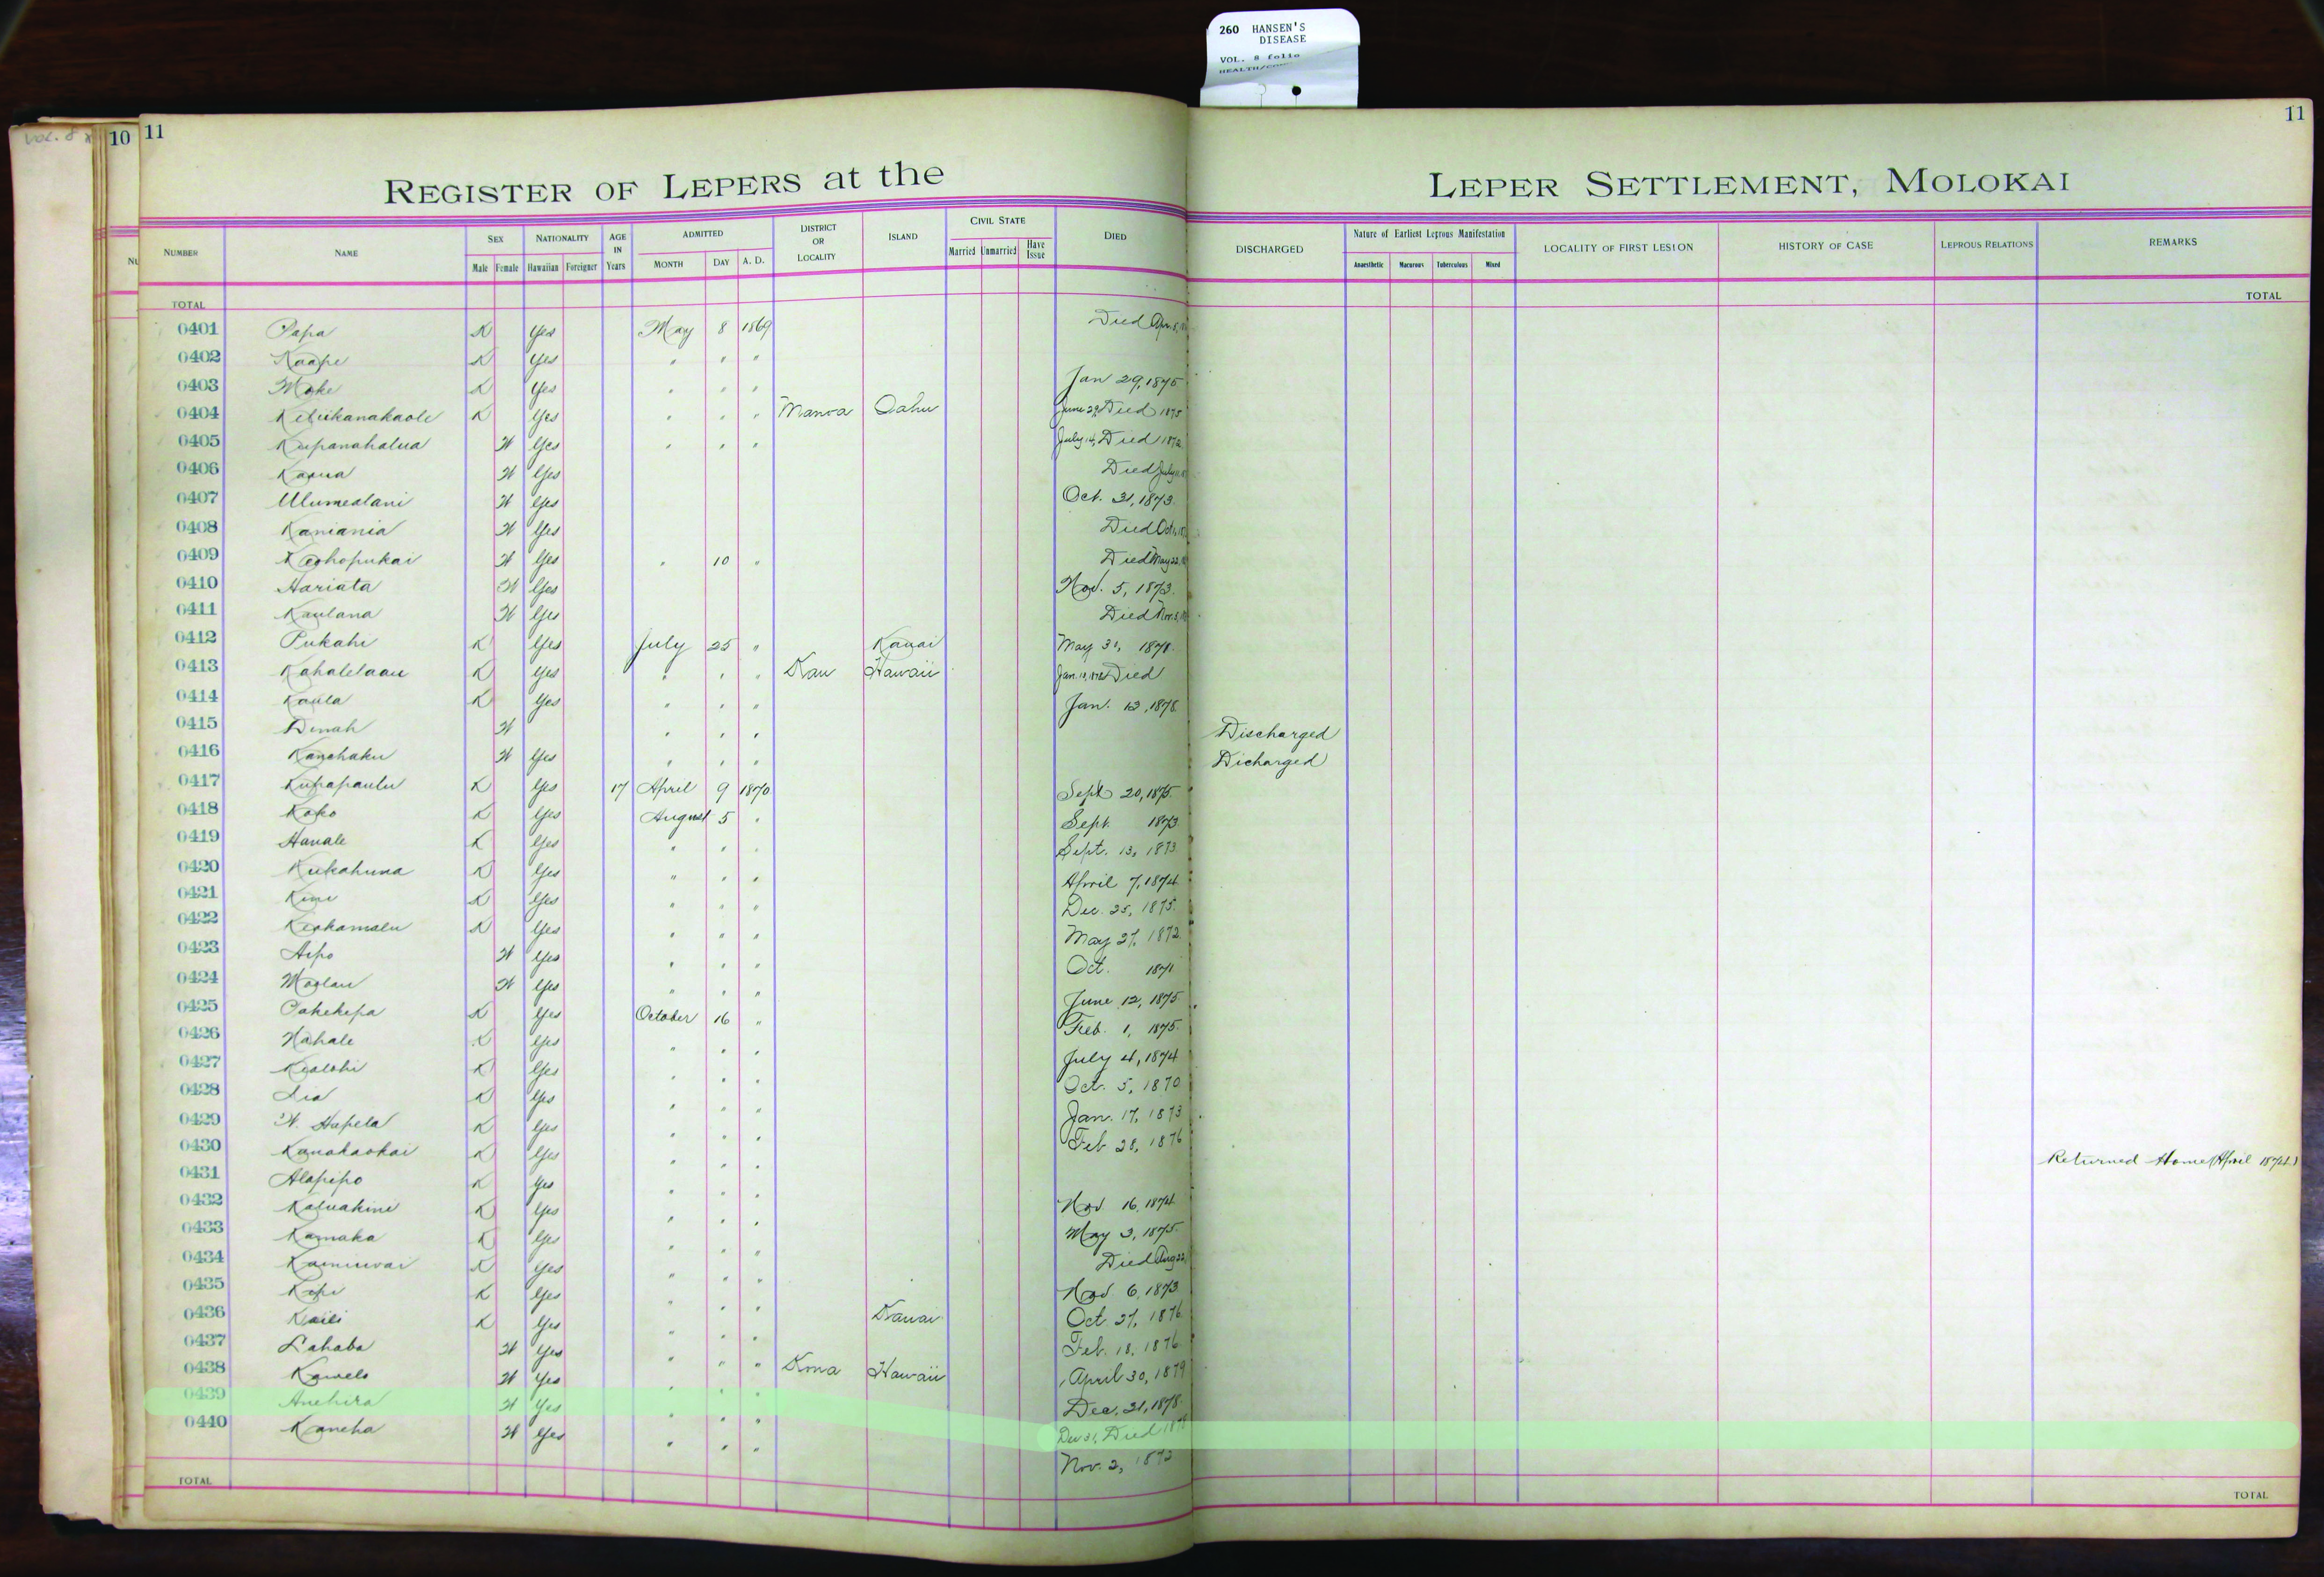 260 HANSEN'S
DISEASE
VOL. 8 folio
11
10 11
VOL. 8
REGISTER OF LEPERS at the LEPER SETTLEMENT, MOLOKAI
NUMBER NAME SEX NATIONALITY AGE IN Years ADMITTED DISTRICT OR LOCALITY ISLAND CIVIL STATE DIED DISCHARGED Nature of Earliest Leprous Manifestation LOCALITY OF FIRST LESION HISTORY OF CASE LEPROUS RELATIONS REMARKS
Male Female Hawaiian Foreigner MONTH DAY A. D. Married Unmarried Have Issue Anaesthetic Macurous Tuberculous Mixed
TOTAL TOTAL
0401 Papa K Yes May 8 1869 Died Apr. 8,
0402 Kaape K Yes " " "
0403 Moke K Yes " " " Jan 29, 1875
0404 Keliikanakaole K Yes " " " Manoa Oahu June 29, Died 1875
0405 Kupanahalua W Yes " " " July 14, Died 1872
0406 Kaaua W Yes Died July
0407 Ulumealani W Yes Oct. 31, 1873.
0408 Kaniania W Yes Died Oct.
0409 Keohopukai W Yes " 10 " Died May 22,
0410 Hariata W Yes Nov. 5, 1873.
0411 Kaulana W Yes Died Nov. 5,
0412 Pukahi K Yes July 25 " Kauai May 31, 1878.
0413 Kahalelaau K Yes " " " Kau Hawaii Died
0414 Kaula K Yes " " " Jan. 13, 1878.
0415 Dinah W " " " Discharged
0416 Kanehaku W Yes " " " Dicharged
0417 Kupapaulu K Yes 17 April 9 1870 Sept 20, 1875.
0418 Koko K Yes August 5 " Sept. 1873
0419 Hanale K Yes " " " Sept. 13, 1873
0420 Kukahuna K Yes " " " April 7, 1874
0421 Kini K Yes " " " Dec. 25, 1875.
0422 Keohamalu K Yes " " " May 27, 1872.
0423 Aipo W Yes " " " Oct. 1871
0424 Moolau W Yes " " " June 12, 1875
0425 Pakekepa K Yes October 16 " Feb. 1, 1875.
0426 Nahale K Yes " " " July 4, 1874
0427 Kealohi K Yes " " " Oct. 5, 1870
0428 Lia K Yes " " " Jan. 17, 1873
0429 W. Hapela K Yes " " " Feb 28, 1876
0430 Kanakaokai K Yes " " " Returned Home (April 1874.)
0431 Alapipo K Yes " " " Nov. 16, 1874
0432 Kaluakini K Yes " " " May 3, 1875.
0433 Kamaka K Yes " " " Died Aug 22,
0434 Kaminwai K Yes " " " Nov. 6, 1873
0435 Kopi K Yes " " " Oct. 27, 1876
0436 Kaili K Yes " " " Kauai Feb. 18, 1876
0437 Lahaba W Yes " " "
0438 Kawelo W Yes " " " Kona Hawaii April 30, 1879
0439 Anehira W Yes " " " Dec. 31, 1878.
0440 Kaneha W Yes " " " Dec 31, Died 1878
Nov. 2, 1872
TOTAL TOTAL